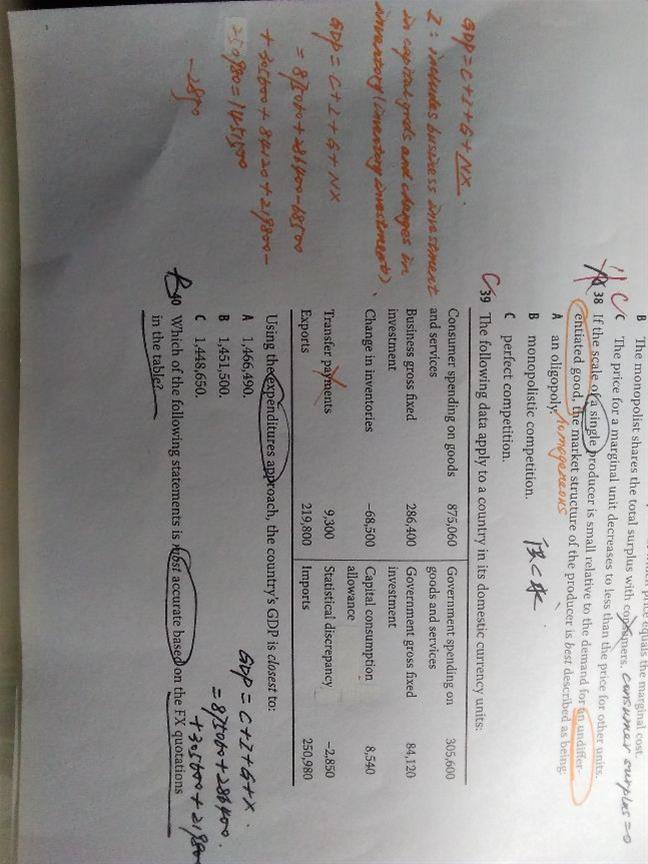 B The monopolist shares the total surplus with consumers.
consumer surplus = 0
C The price for a marginal unit decreases to less than the price for other units.
C
38 If the scale of a single producer is small relative to the demand for an undiffer-
entiated good, the market structure of the producer is best described as being:
A an oligopoly.
homogeneous
B monopolistic competition.
C perfect competition.
C 39 The following data apply to a country in its domestic currency units:
Consumer spending on goods and services 875,060 Government spending on goods and services 305,600
Business gross fixed investment 286,400 Government gross fixed investment 84,120
Change in inventories –68,500 Capital consumption allowance 8,540
Transfer payments 9,300 Statistical discrepancy –2,850
Exports 219,800 Imports 250,980
Using the expenditures approach, the country's GDP is closest to:
A 1,466,490.
B 1,451,500.
C 1,448,650.
B 40 Which of the following statements is most accurate based on the FX quotations
in the table?
GDP = C+I+G+NX.
I: includes business investment
in capital goods and changes in
inventory (inventory investment).
GDP = C+I+G+NX
= 875060+286400-68500
+305600+84120+219800-
250980=1451500
-2850
GDP = C+I+G+X.
= 875060+286400.
+305600+21980